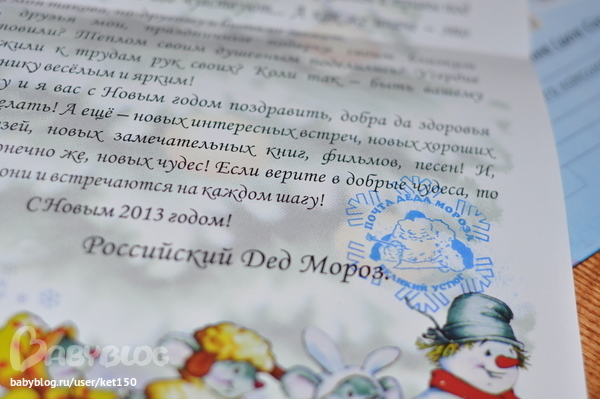 друзья мои, праздничные подарки своим близким
товили? Теплом своим душевным поделились? Усердие
жили к трудам рук своих? Коли так – быть вашему
нику весёлым и ярким!
у и я вас с Новым годом поздравить, добра да здоровья
елать! А ещё – новых интересных встреч, новых хороших
зей, новых замечательных книг, фильмов, песен! И,
онечно же, новых чудес! Если верите в добрые чудеса, то
они и встречаются на каждом шагу!
С Новым 2013 годом!
Российский Дед Мороз.
ПОЧТА ДЕДА МОРОЗА
ВЕЛИКИЙ УСТЮГ
BABYBLOG
babyblog.ru/user/ket150